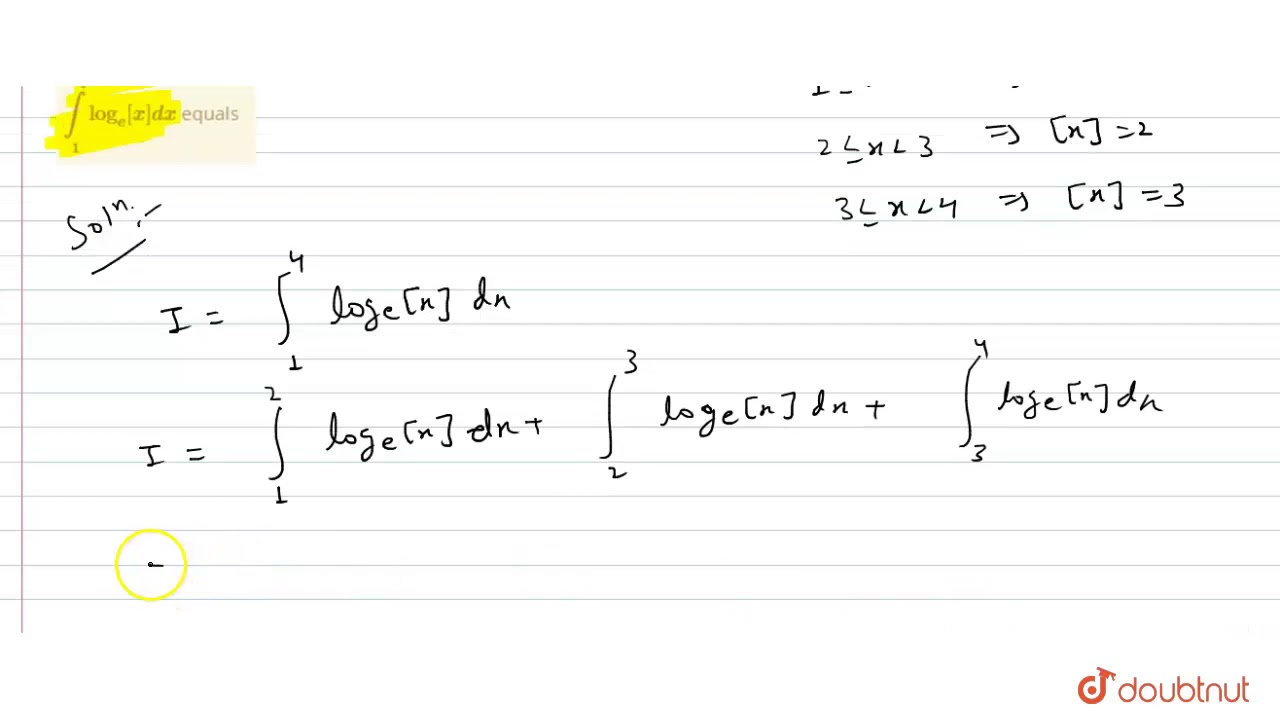 ∫₁ logₑ[x]dx equals
2 ≤ x < 3 ⇒ [x] = 2
3 ≤ x < 4 ⇒ [x] = 3
Solⁿ.:-
I = ∫₁⁴ logₑ[x] dx
I = ∫₁² logₑ[x] dx + ∫₂³ logₑ[x] dx + ∫₃⁴ logₑ[x] dx
doubtnut